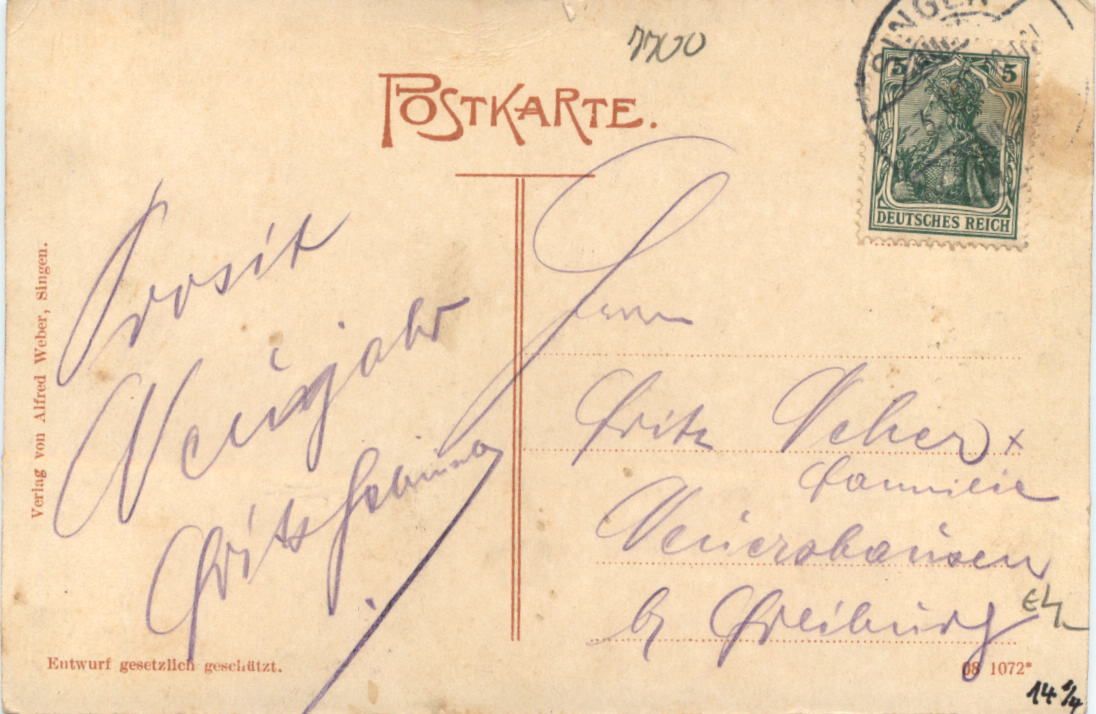 7700
POSTKARTE.
SINGEN
5 5
DEUTSCHES REICH
Prosit
Neujahr
Fritz
Herrn
Fritz Neher +
Familie
Neuershausen
b/ Freiburg
Verlag von Alfred Weber, Singen.
Entwurf gesetzlich geschützt.
08 1072*
14 1/4